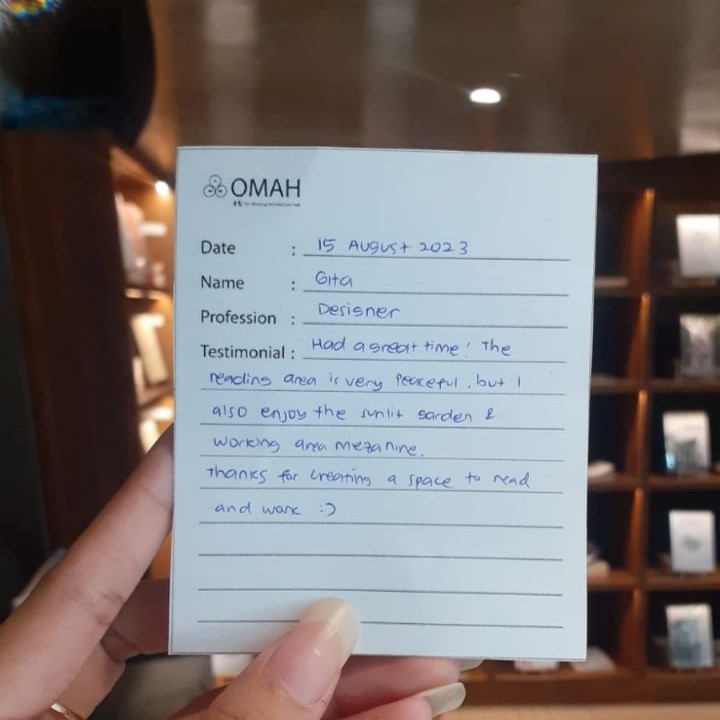 OMAH
Date : 15 August 2023
Name : Gita
Profession : Designer
Testimonial : Had a great time! The
reading area is very peaceful, but I
also enjoy the sunlit garden &
working area mezanine.
Thanks for creating a space to read
and work :)